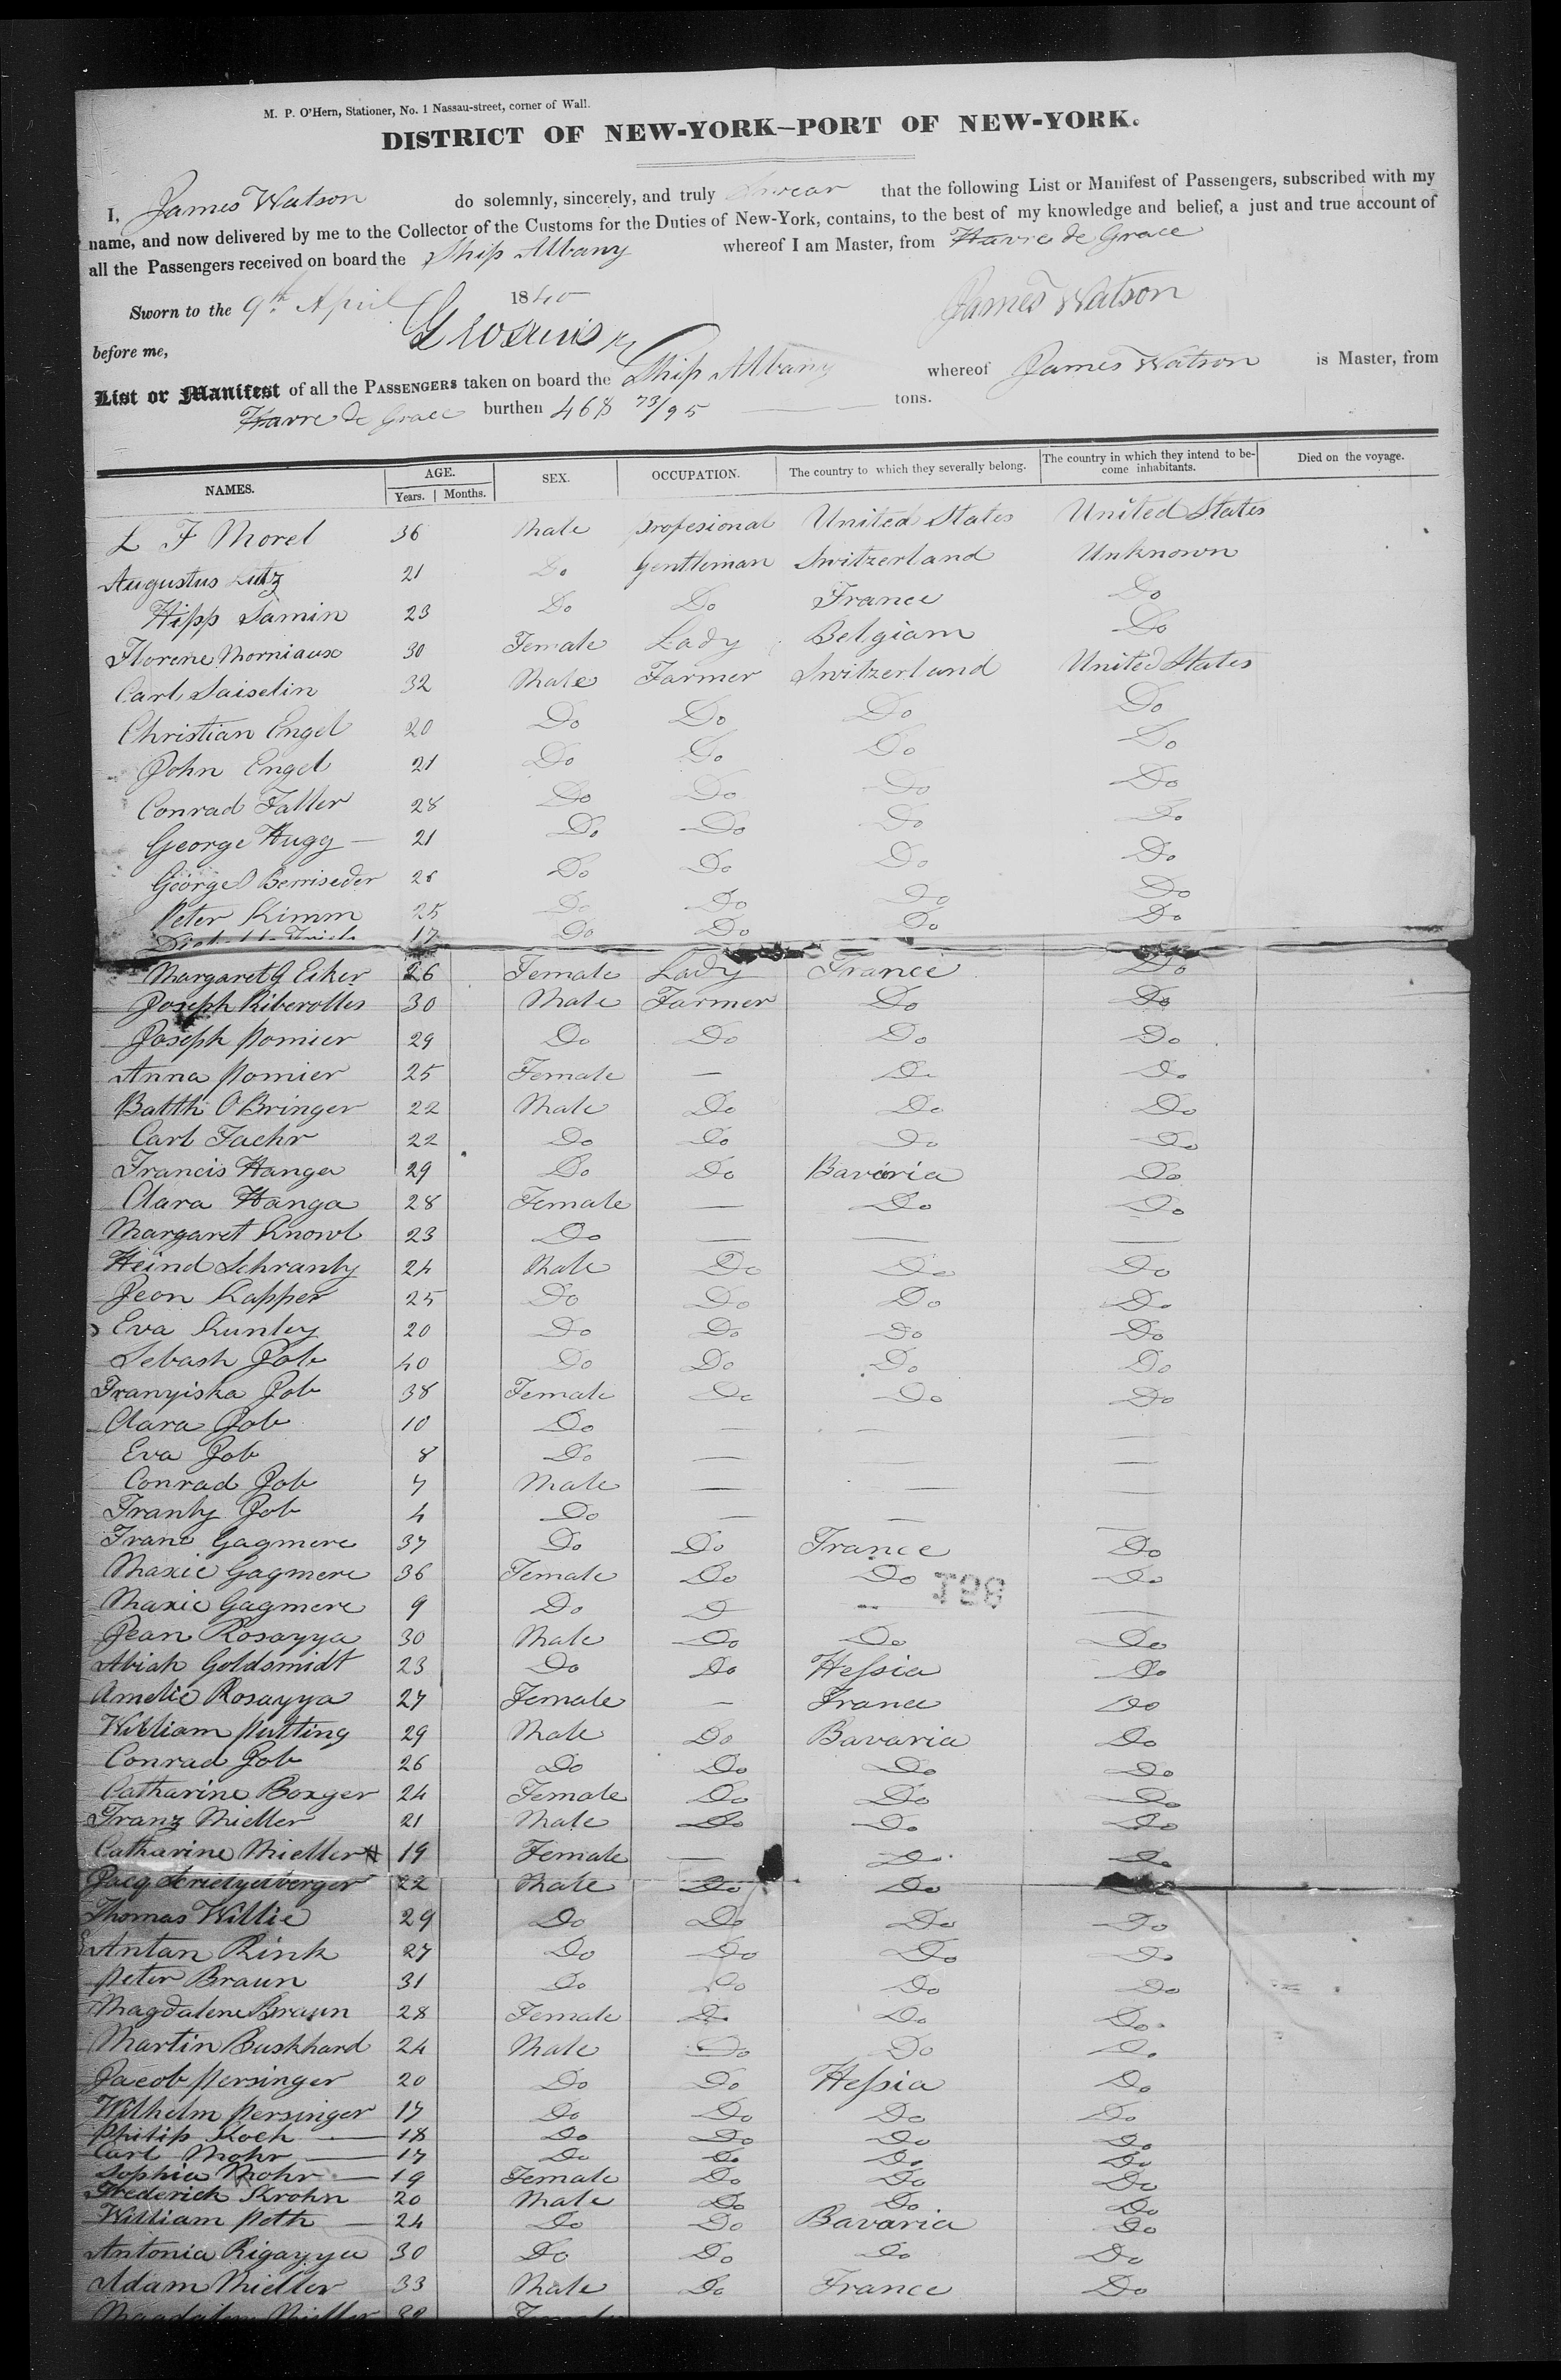 M. P. O'Hern, Stationer, No. 1 Nassau-street, corner of Wall.
DISTRICT OF NEW-YORK—PORT OF NEW-YORK.
I, James Watson do solemnly, sincerely, and truly Swear that the following List or Manifest of Passengers, subscribed with my
name, and now delivered by me to the Collector of the Customs for the Duties of New-York, contains, to the best of my knowledge and belief, a just and true account of
all the Passengers received on board the Ship Albany whereof I am Master, from Havre de Grace
Sworn to the 9th April 1840 James Watson
before me,
List or Manifest of all the PASSENGERS taken on board the Ship Albany whereof James Watson is Master, from
Havre de Grace burthen 468 73/95 tons.
NAMES. AGE. Years. Months. SEX. OCCUPATION. The country to which they severally belong. The country in which they intend to become inhabitants. Died on the voyage.
L F Morel 36 Male profesional United States United States
Augustus Lutz 21 Do Gentleman Switzerland Unknown
Hipp Samin 23 Do Do France Do
Florene Morniaux 30 Female Lady Belgiam Do
Carl Saiselin 32 Male Farmer Switzerland United States
Christian Engel 20 Do Do Do Do
John Engel 21 Do Do Do Do
Conrad Faller 28 Do Do Do Do
George Hugg 21 Do Do Do Do
George Berriseder 26 Do Do Do Do
Peter Kimm 25 Do Do Do Do
17 Do Do Do Do
Margaret G Eiker 26 Female Lady France Do
Joseph Riberolles 30 Male Farmer Do Do
Joseph Pomier 29 Do Do Do Do
Anna Pomier 25 Female — Do Do
Batth O Bringer 22 Male Do Do Do
Carl Faehr 22 Do Do Do Do
Francis Hanga 29 Do Do Bavaria Do
Clara Hanga 28 Female — Do Do
Margaret Knowl 23 Do — — —
Heind Schranty 24 Male Do Do Do
Jean Kapper 25 Do Do Do Do
Eva Kunley 20 Do Do Do Do
Sebash Job 40 Do Do Do Do
Franyiska Job 38 Female Do Do Do
Clara Job 10 Do — — —
Eva Job 8 Do — — —
Conrad Job 7 Male — — —
Franty Job 4 Do — — —
Franc Gagmere 37 Do Do France Do
Maxie Gagmere 36 Female Do Do Do
Maxie Gagmere 9 Do D — —
Jean Rosayya 30 Male Do Do Do
Abiah Goldsmidt 23 Do Do Hessia Do
Amelie Rosayya 27 Female — France Do
William Putting 29 Male Do Bavaria Do
Conrad Job 26 Do Do Do Do
Catharine Boxger 24 Female Do Do Do
Franz Mieller 21 Male Do Do Do
Catharine Mieller 19 Female — Do Do
Jacq 22 Male Do Do Do
Thomas Willie 29 Do Do Do Do
Antan Rink 27 Do Do Do Do
Peter Braun 31 Do Do Do Do
Magdalene Braun 28 Female Do Do Do
Martin Buskhard 24 Male Do Do Do
Jacob Persinger 20 Do Do Hessia Do
Wilhelm Persinger 17 Do Do Do Do
Philip Koch 18 Do Do Do Do
Carl Mohr 17 Do Do Do Do
Sophia Mohr 19 Female Do Do Do
Frederick Krohn 20 Male Do Do Do
William Poth 24 Do Do Bavaria Do
Antonia Rigayya 30 Do Do Do Do
Adam Mieller 33 Male Do France Do
Magdalene Mieller 32 Female